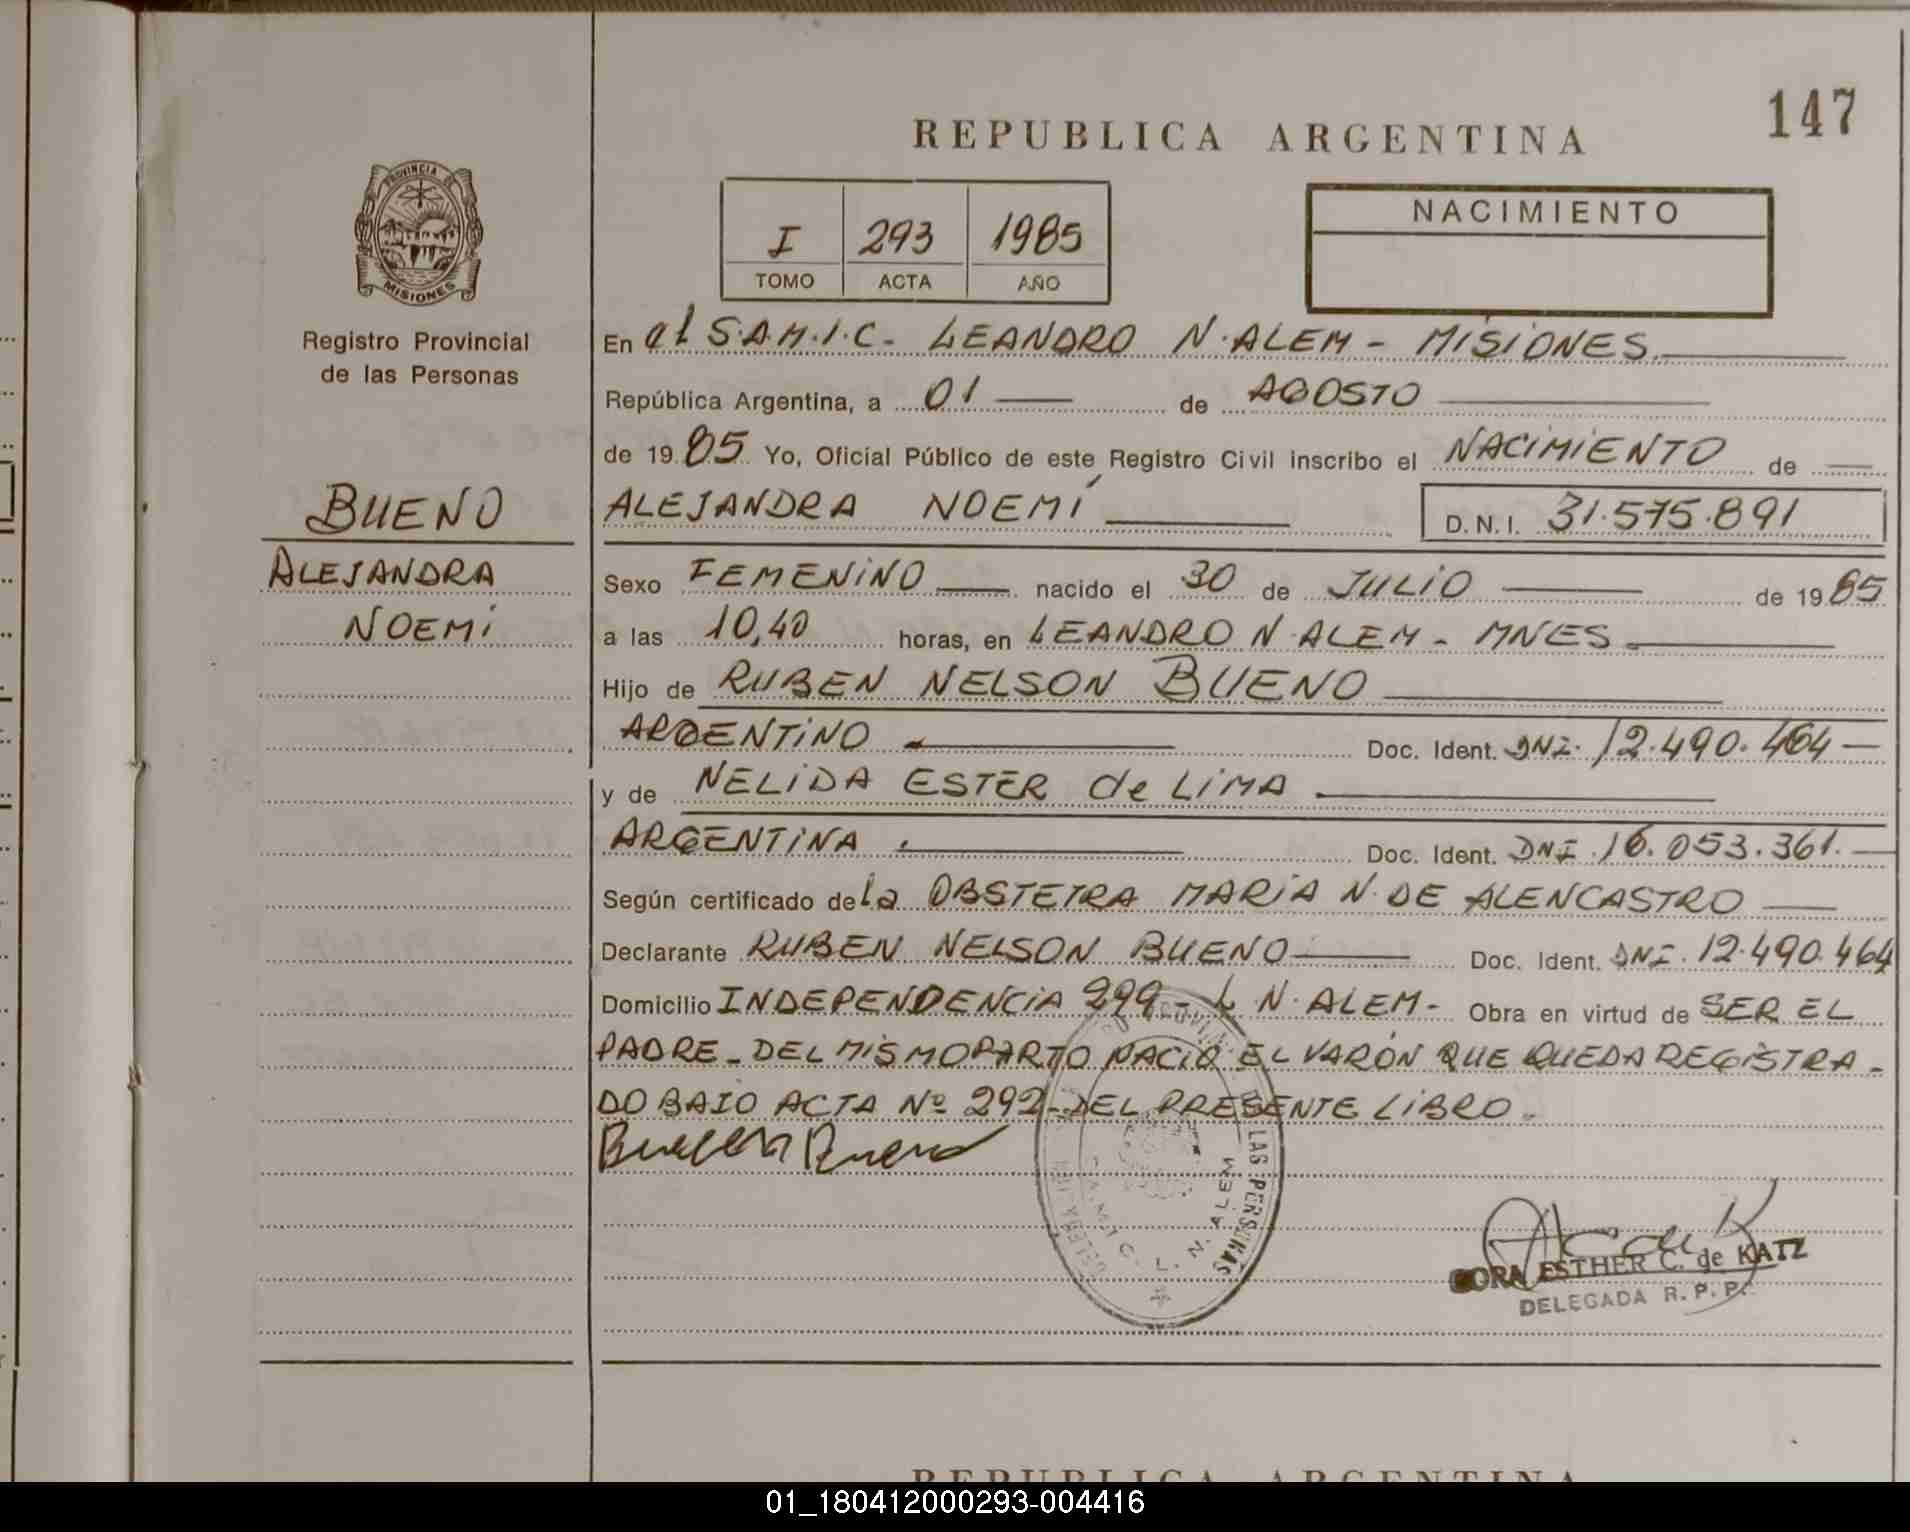 147
REPUBLICA ARGENTINA
PROVINCIA DE
MISIONES
Registro Provincial
de las Personas
I 293 1985
TOMO ACTA AÑO
NACIMIENTO
En el S.A.M.I.C. LEANDRO N. ALEM - MISIONES
República Argentina, a 01 de AGOSTO
de 1985 Yo, Oficial Público de este Registro Civil inscribo el NACIMIENTO de
BUENO
ALEJANDRA NOEMÍ D.N.I. 31.575.891
ALEJANDRA
NOEMÍ
Sexo FEMENINO nacido el 30 de JULIO de 1985
a las 10,40 horas, en LEANDRO N. ALEM - MNES
Hijo de RUBEN NELSON BUENO
ARGENTINO Doc. Ident. DNI. 12.490.464
y de NELIDA ESTER de LIMA
ARGENTINA Doc. Ident. DNI 16.053.361.
Según certificado de la OBSTETRA MARIA N. DE ALENCASTRO
Declarante RUBEN NELSON BUENO Doc. Ident. DNI. 12.490.464
Domicilio INDEPENDENCIA 299 - L. N. ALEM - Obra en virtud de SER EL
PADRE - DEL MISMO PARTO NACIO EL VARÓN QUE QUEDA REGISTRA-
DO BAJO ACTA Nº 292 - DEL PRESENTE LIBRO.
Bueno
LAS PERSONAS
L. N. ALEM
DORA ESTHER C. de KATZ
DELEGADA R. P. P.
REPUBLICA ARGENTINA
01_180412000293-004416